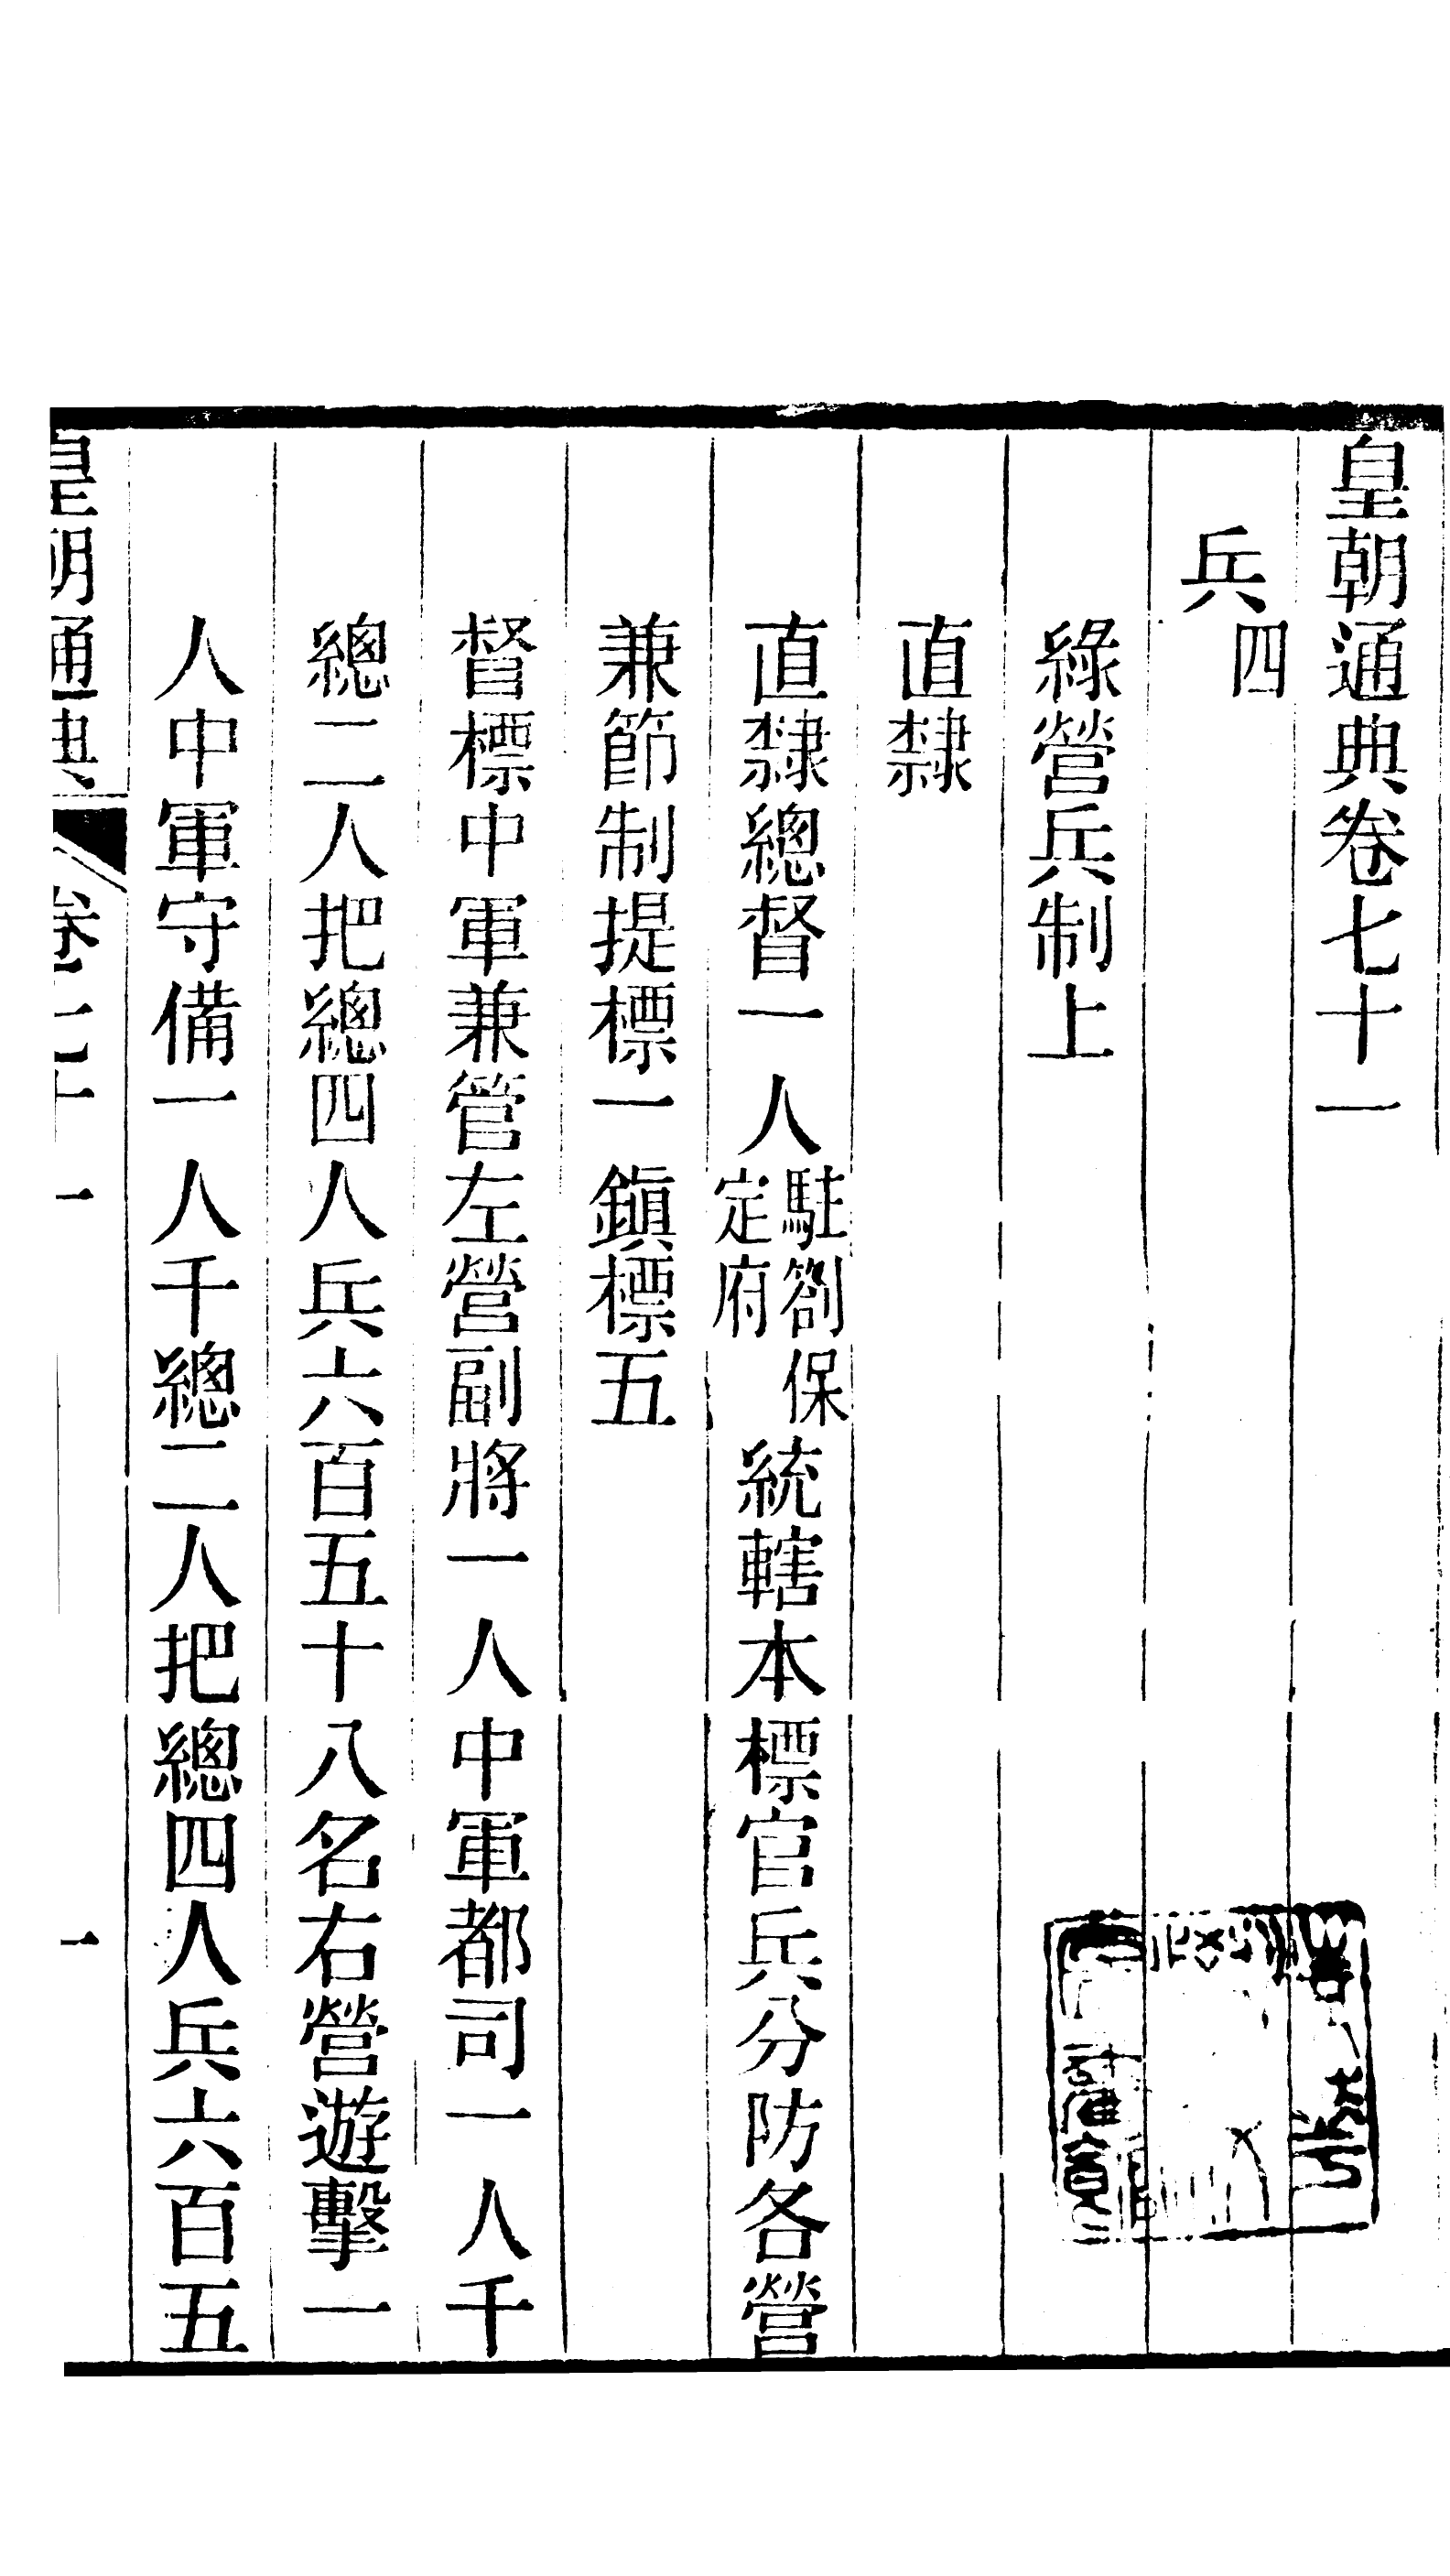 皇朝通典卷七十一
兵四
綠營兵制上
直隸
直隸總督一人駐劄保定府統轄本標官兵分防各營
兼節制提標一鎭標五
督標中軍兼管左營副將一人中軍都司一人千
總二人把總四人兵六百五十八名右營遊擊一
人中軍守備一人千總二人把總四人兵六百五
皇朝通典 卷七十一 一